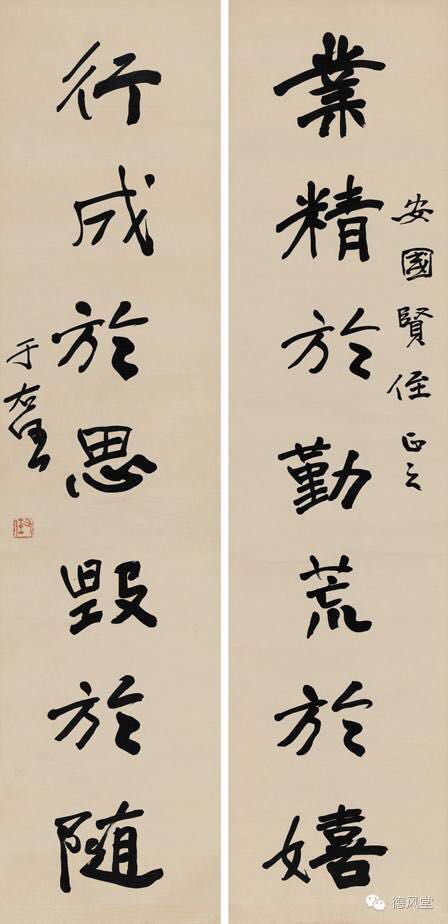 安國賢侄正之
業精於勤荒於嬉
行成於思毀於随
于右任
德风堂